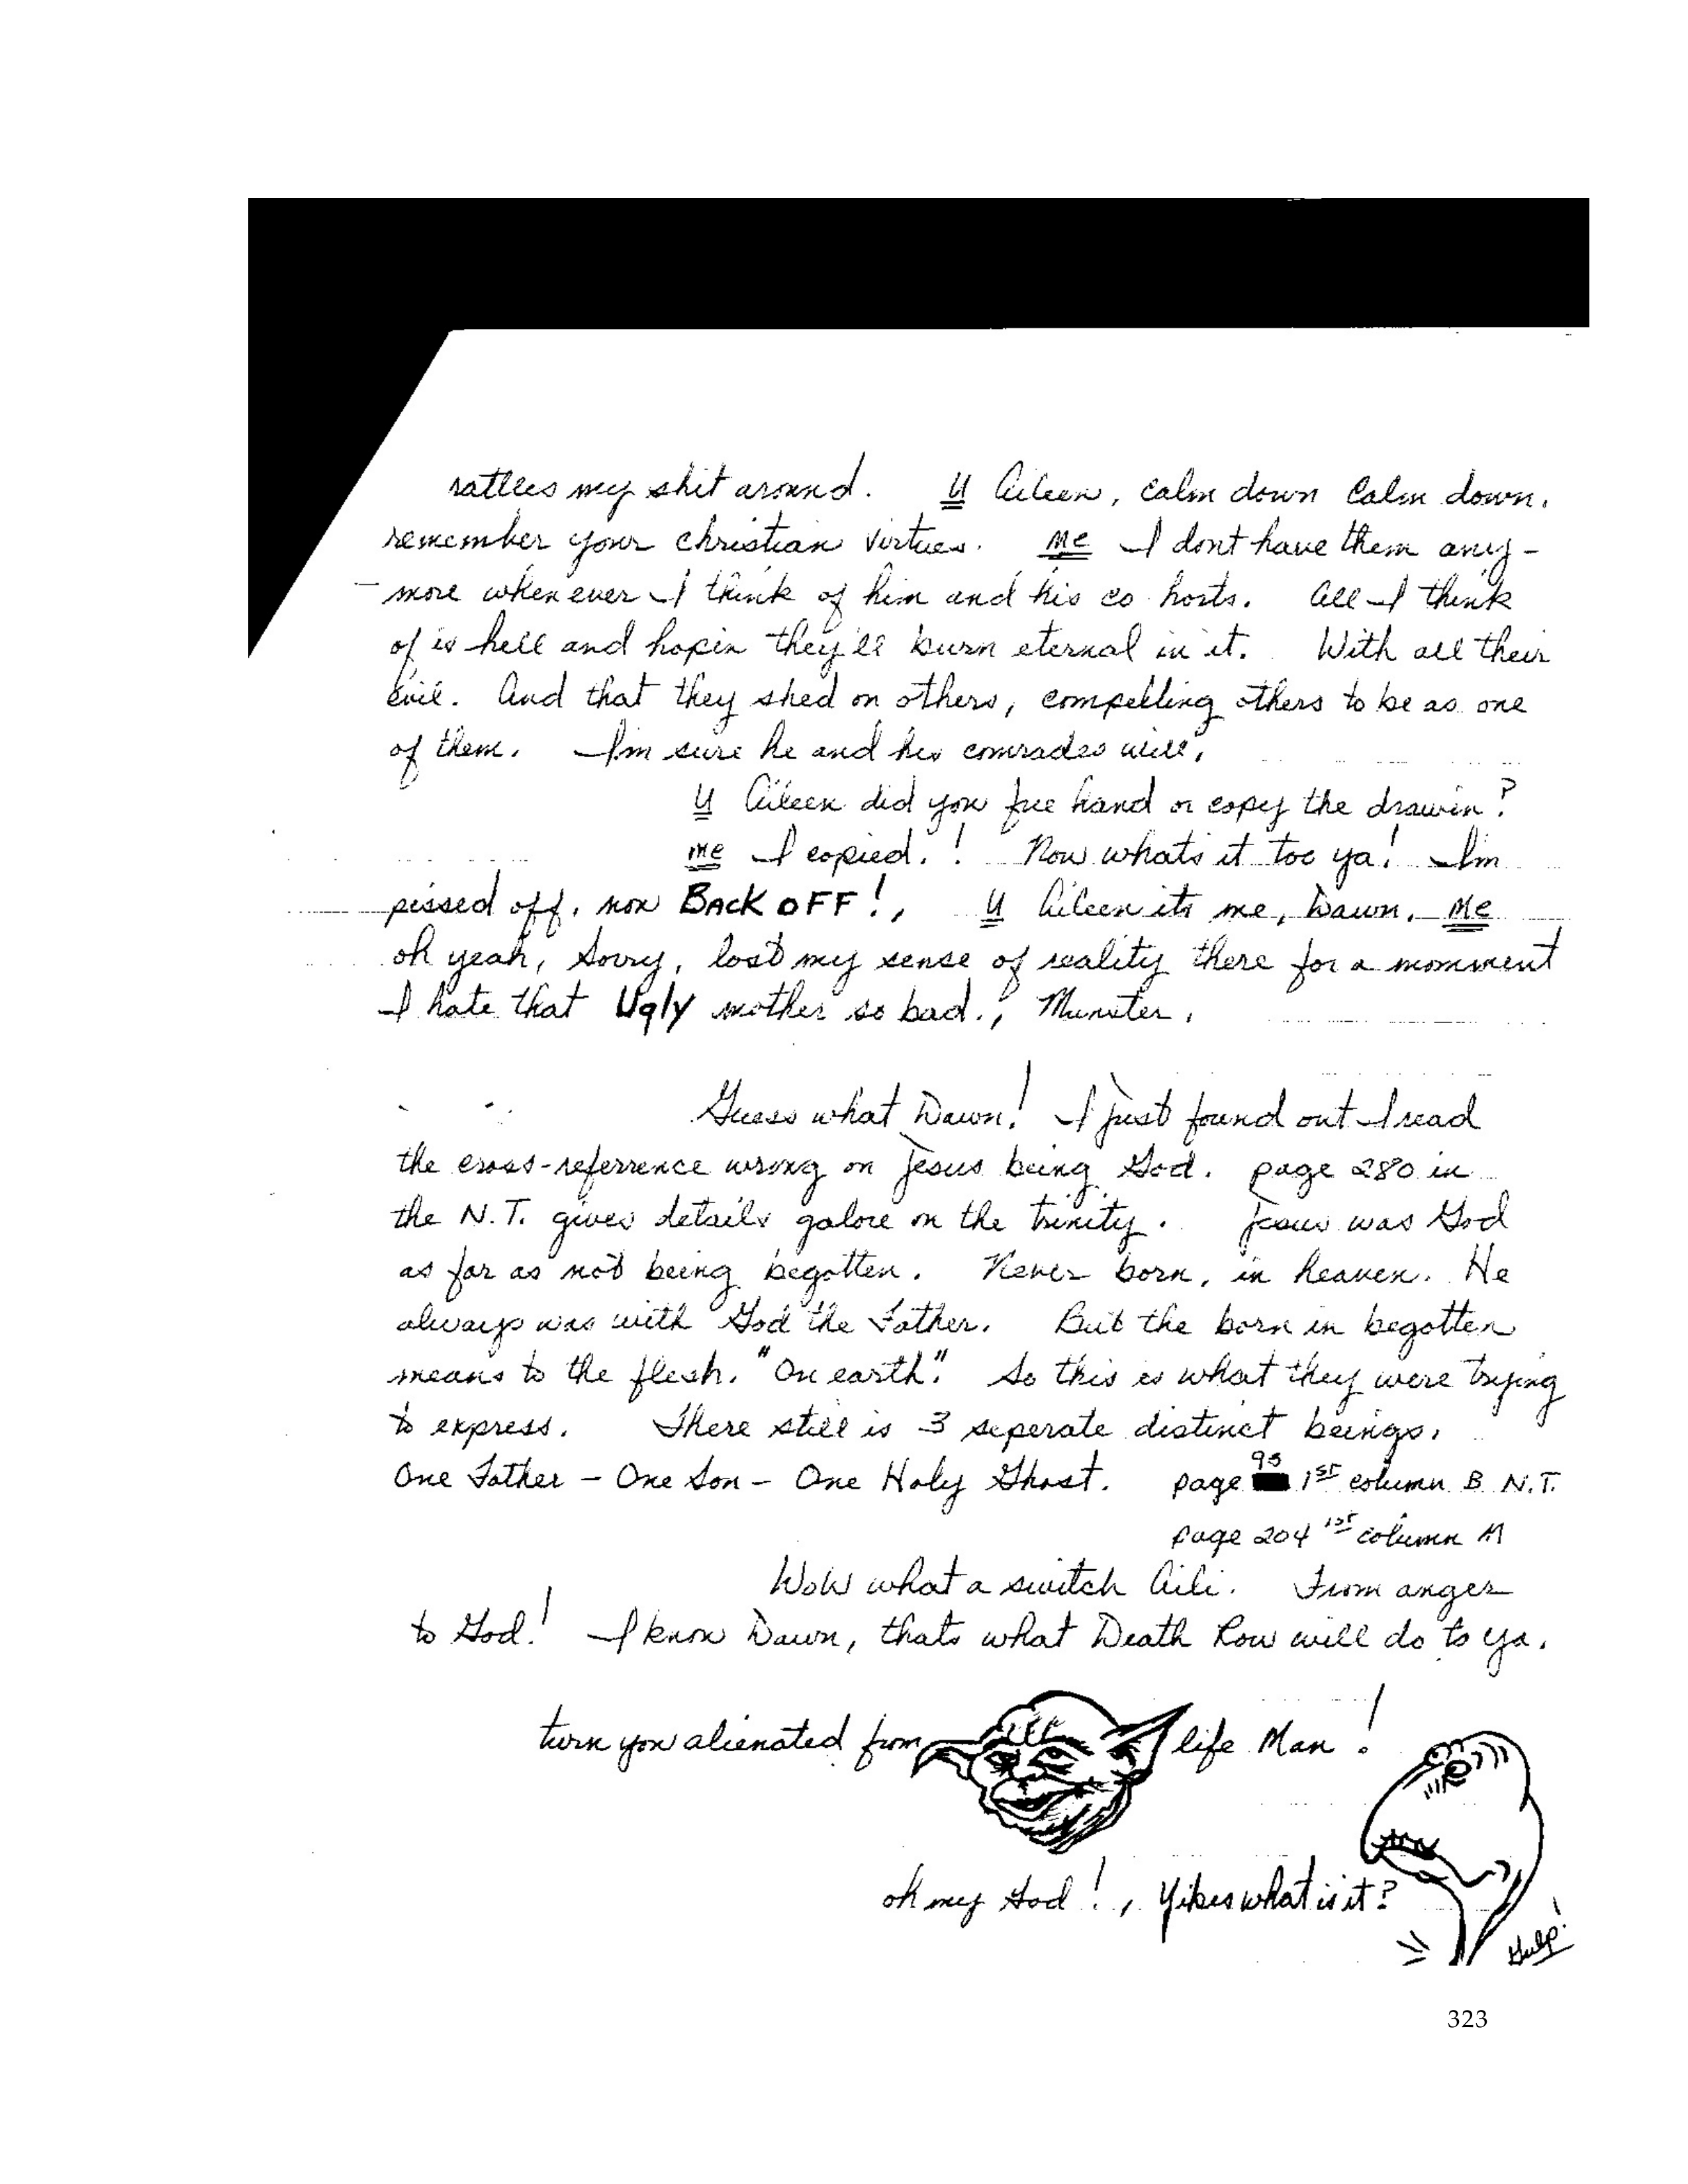 rattles my shit around. U Aileen, calm down Calm down.
remember your christian virtues. Me I dont have them any-
more when ever I think of him and his co hosts. All I think
of is hell and hopin they'll burn eternal in it. With all their
evil. And that they shed on others, compelling others to be as one
of them. I'm sure he and his comrades will.
U Aileen did you free hand or copy the drawin?
me I copied.! Now whats it too ya! I'm
pissed off, now BACK OFF!, U Aileen its me, Dawn. Me
oh yeah, Sorry, lost my sense of reality there for a momment
I hate that Ugly mother so bad., Munster.
Guess what Dawn! I just found out I read
the cross-referrence wrong on Jesus being God. page 280 in
the N.T. gives details galore on the trinity. Jesus was God
as far as not being begotten. Never born, in heaven. He
always was with God the Father. But the born in begotten
means to the flesh. "On earth". So this is what they were trying
to express. There still is 3 seperate distinct beings.
One Father - One Son - One Holy Ghost. page 95 1st column B N.T.
page 204 1st column M
Wow what a switch Aili. From anger
to God! I know Dawn, thats what Death Row will do to ya.
turn you alienated from life Man!
oh my God!, Yikes what is it?
Gulp!
323